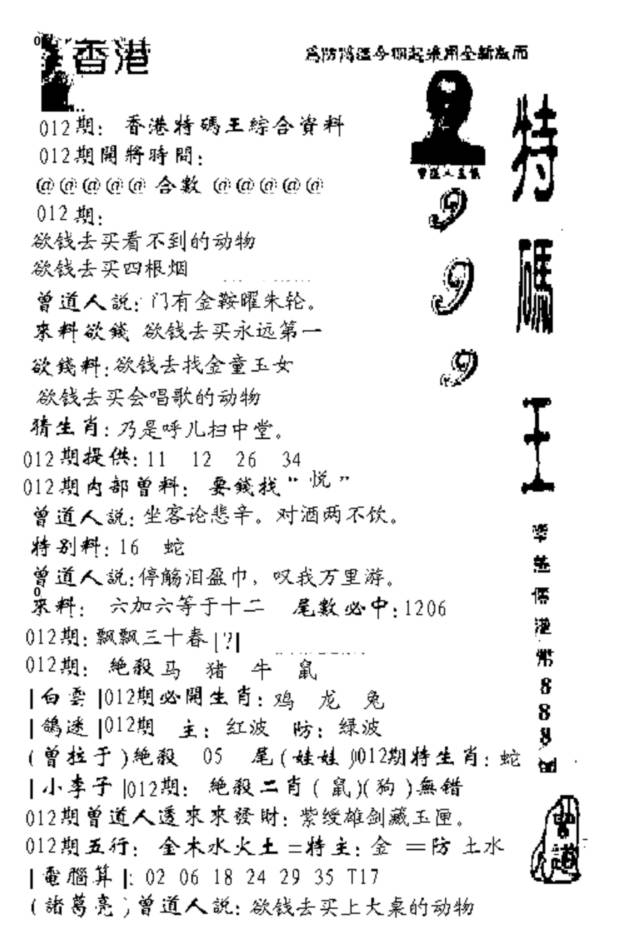 香港
為防濫今期起采用全新版面
012期: 香港特碼王綜合資料
012期開將時間:
@@@@@ 合數 @@@@@
012期:
欲钱去买看不到的动物
欲钱去买四根烟
曾道人説:门有金鞍曜朱轮。
來料欲錢 欲钱去买永远第一
欲錢料:欲钱去找金童玉女
欲钱去买会唱歌的动物
猜生肖:乃是呼儿扫中堂。
012期提供:11 12 26 34
012期内部曾料: 要錢找“悦”
曾道人説:坐客论悲辛。对酒两不饮。
特别料:16 蛇
曾道人説:停觞泪盈巾，叹我万里游。
來料: 六加六等于十二 尾數必中:1206
012期:飘飘三十春|?|
012期: 絶殺马 猪 牛 鼠
|白雲|012期必開生肖:鸡 龙 兔
|鴿迷|012期 主:红波 防:绿波
(曾拉于)絶殺 05 尾(娃娃)012期特生肖:蛇
|小李子|012期: 絶殺二肖(鼠)(狗)無错
012期曾道人透來來發財:紫绶雄剑藏玉匣。
012期五行: 金木水火土=特主:金 =防土水
|電腦算|:02 06 18 24 29 35 T17
(諸葛亮)曾道人説:欲钱去买上大桌的动物
9
9
9
特碼王
港幣888
曾道